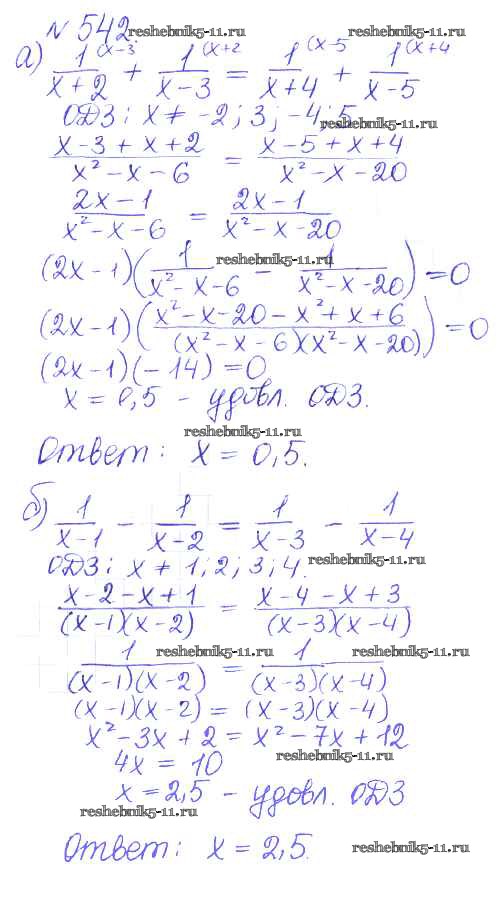 № 542. reshebnik5-11.ru
а) 1/(x+2) (x-3 + 1/(x-3) (x+2 = 1/(x+4) (x-5 + 1/(x-5) (x+4
ОДЗ: x ≠ -2; 3; -4; 5. reshebnik5-11.ru
(x-3+x+2)/(x²-x-6) = (x-5+x+4)/(x²-x-20)
(2x-1)/(x²-x-6) = (2x-1)/(x²-x-20)
reshebnik5-11.ru
(2x-1)(1/(x²-x-6) - 1/(x²-x-20)) = 0
(2x-1)((x²-x-20-x²+x+6)/((x²-x-6)(x²-x-20))) = 0
(2x-1)(-14) = 0
x = 0,5 - удовл. ОДЗ.
reshebnik5-11.ru
Ответ: x = 0,5.
б) 1/(x-1) - 1/(x-2) = 1/(x-3) - 1/(x-4)
ОДЗ: x ≠ 1; 2; 3; 4. reshebnik5-11.ru
(x-2-x+1)/((x-1)(x-2)) = (x-4-x+3)/((x-3)(x-4))
reshebnik5-11.ru reshebnik5-11.ru
1/((x-1)(x-2)) = 1/((x-3)(x-4))
(x-1)(x-2) = (x-3)(x-4)
x²-3x+2 = x²-7x+12
4x = 10 reshebnik5-11.ru
x = 2,5 - удовл. ОДЗ
reshebnik5-11.ru
Ответ: x = 2,5. reshebnik5-11.ru